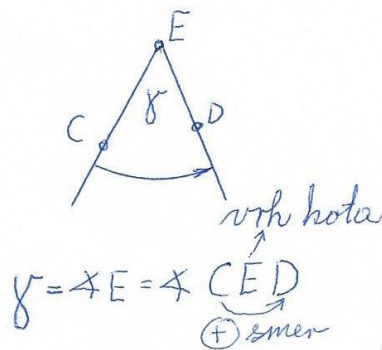 E
γ
C
D
vrh kota
γ = ∢ E = ∢ CED
⊕ smer